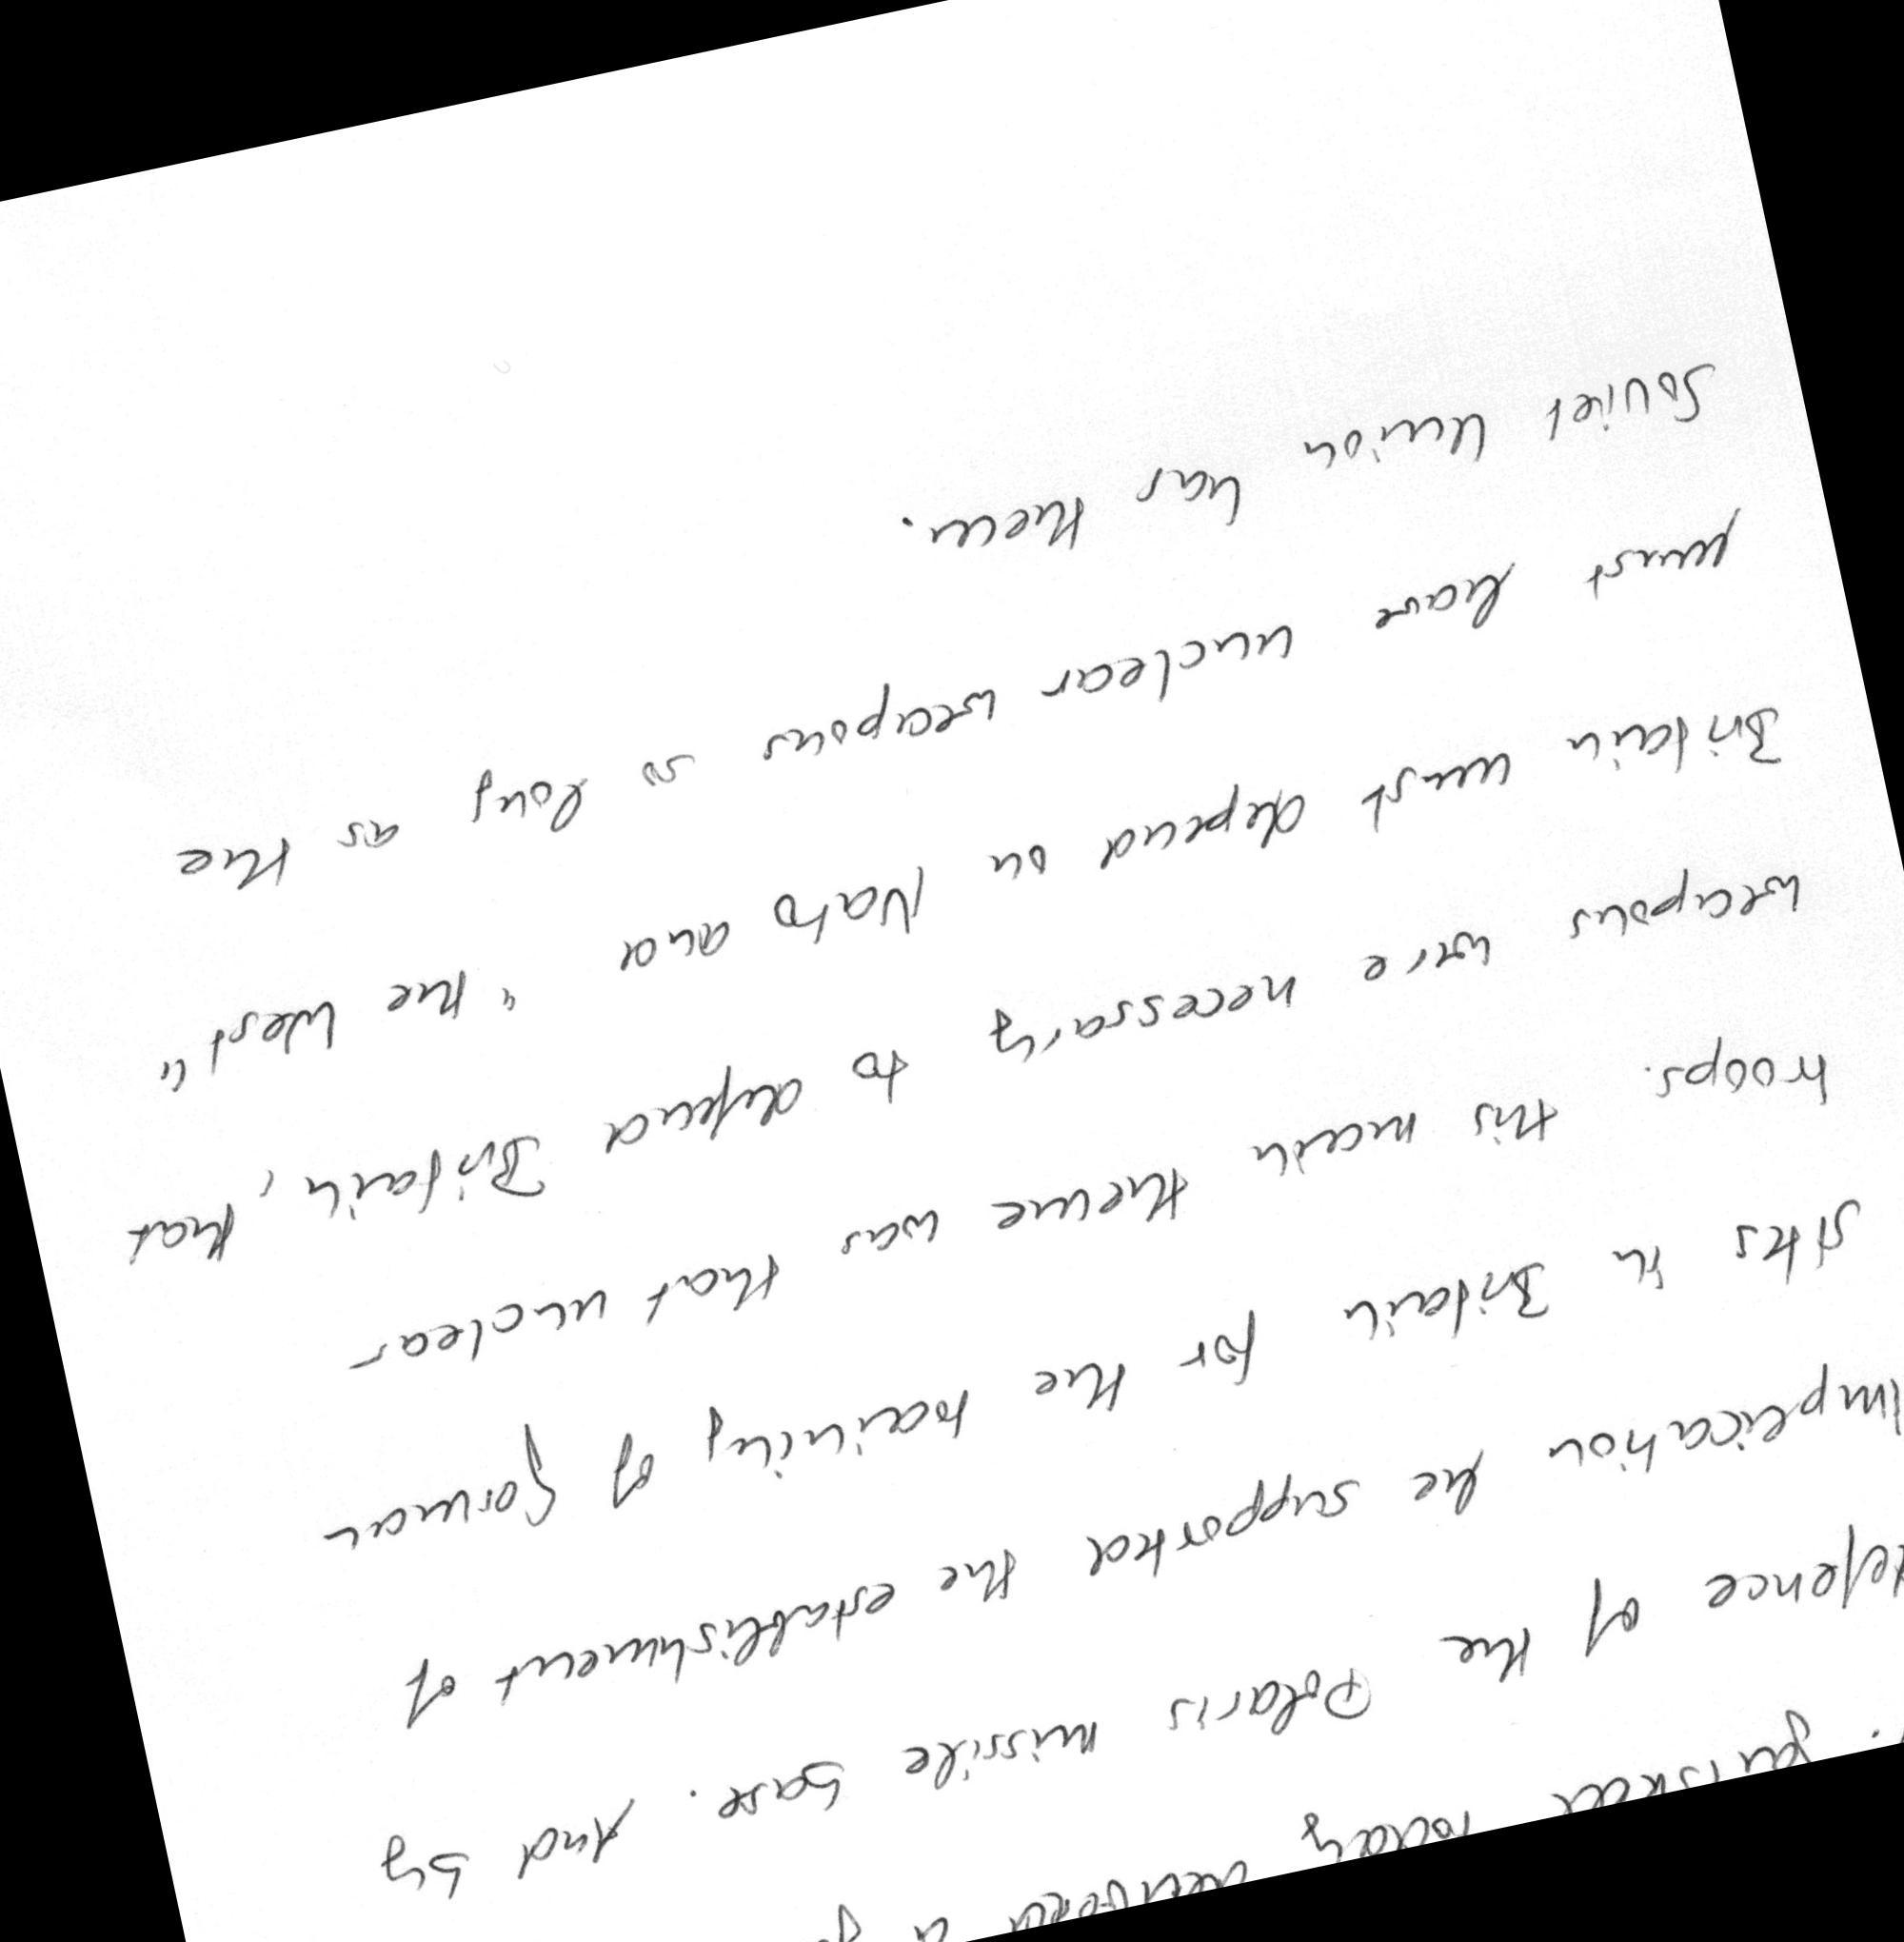 defence of the Polaris missile base. And by
implication he supported the establishment of
sites in Britain for the training of German
troops. this main theme was that nuclear
weapons were necessary to defend Britain, that
Britain must depend on Nato and "the West"
must have nuclear weapons so long as the
Soviet Union has them.